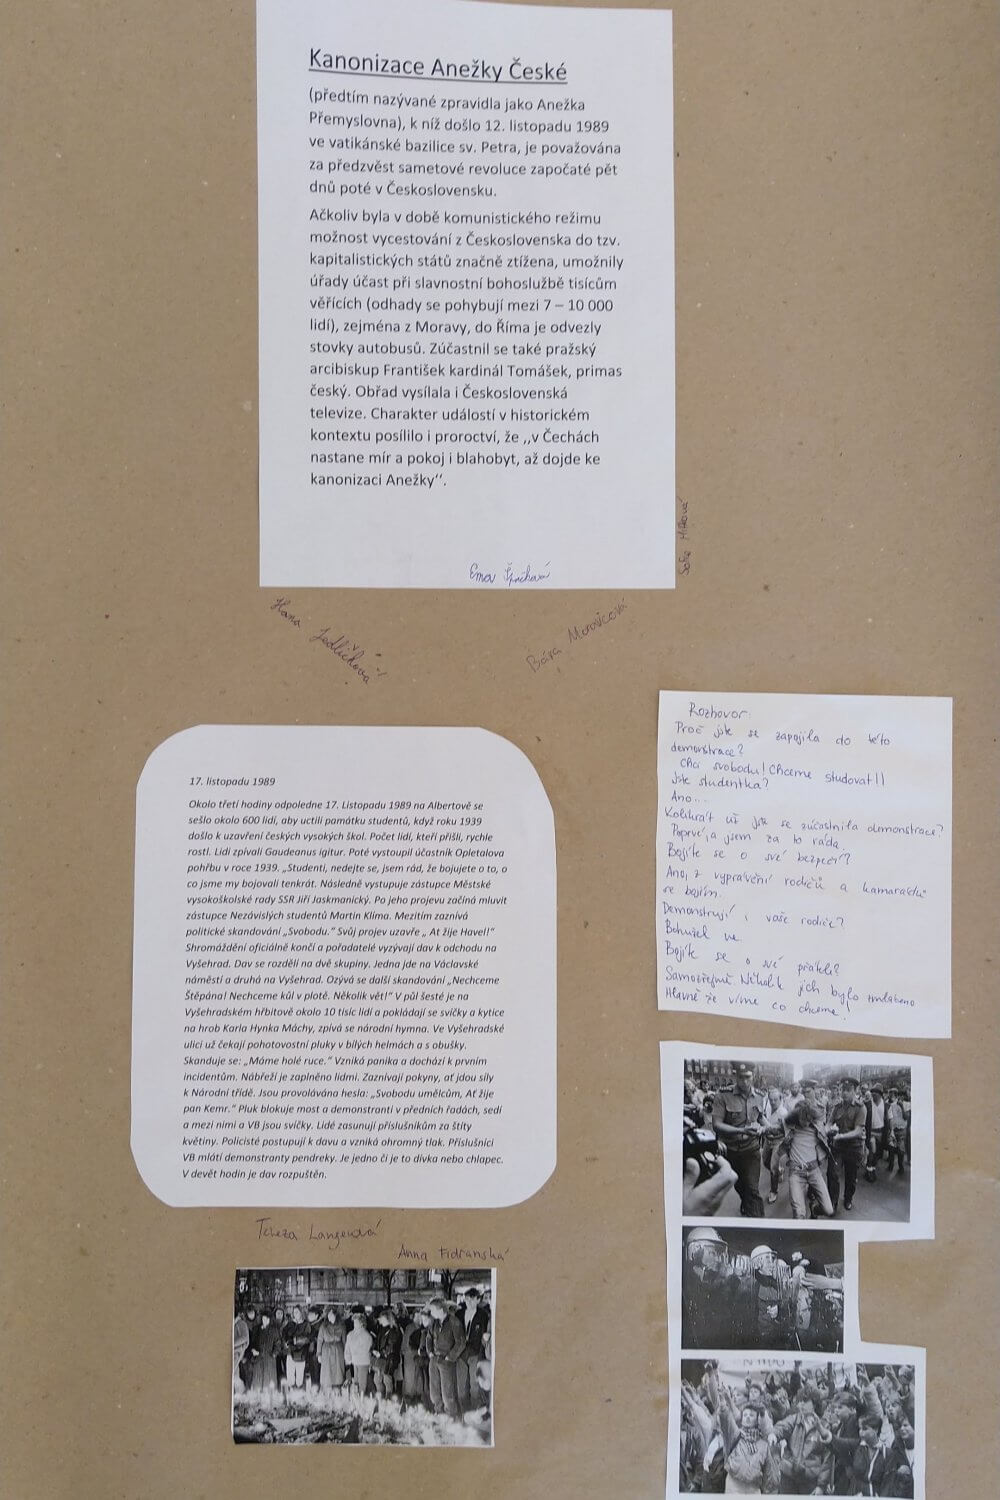 Kanonizace Anežky České
(předtím nazývané zpravidla jako Anežka
Přemyslovna), k níž došlo 12. listopadu 1989
ve vatikánské bazilice sv. Petra, je považována
za předzvěst sametové revoluce započaté pět
dnů poté v Československu.
Ačkoliv byla v době komunistického režimu
možnost vycestování z Československa do tzv.
kapitalistických států značně ztížena, umožnily
úřady účast při slavnostní bohoslužbě tisícům
věřících (odhady se pohybují mezi 7 – 10 000
lidí), zejména z Moravy, do Říma je odvezly
stovky autobusů. Zúčastnil se také pražský
arcibiskup František kardinál Tomášek, primas
český. Obřad vysílala i Československá
televize. Charakter událostí v historickém
kontextu posílilo i proroctví, že ,,v Čechách
nastane mír a pokoj i blahobyt, až dojde ke
kanonizaci Anežky‘‘.
Ema
Sofie
Hana Jedličková
Bára Moravcová
Rozhovor:
Proč jste se zapojila do této
demonstrace?
Chci svobodu! Chceme studovat!!
Jste studentka?
Ano...
Kolikrát už jste se zúčastnila demonstrace?
Poprvé, a jsem za to ráda.
Bojíte se o své bezpečí?
Ano, z vyprávění rodičů a kamarádů
se bojím.
Demonstrují i vaše rodiče?
Bohužel ne.
Bojíte se o své přátele?
Samozřejmě. Několik jich bylo zmláceno
Hlavně že víme co chceme!
17. listopadu 1989
Okolo třetí hodiny odpoledne 17. Listopadu 1989 na Albertově se
sešlo okolo 600 lidí, aby uctili památku studentů, když roku 1939
došlo k uzavření českých vysokých škol. Počet lidí, kteří přišli, rychle
rostl. Lidi zpívali Gaudeanus igitur. Poté vystoupil účastník Opletalova
pohřbu v roce 1939. „Studenti, nedejte se, jsem rád, že bojujete o to, o
co jsme my bojovali tenkrát. Následně vystupuje zástupce Městské
vysokoškolské rady SSR Jiří Jaskmanický. Po jeho projevu začíná mluvit
zástupce Nezávislých studentů Martin Klíma. Mezitím zaznívá
politické skandování „Svobodu.“ Svůj projev uzavře „ Ať žije Havel!“
Shromáždění oficiálně končí a pořadatelé vyzývají dav k odchodu na
Vyšehrad. Dav se rozdělí na dvě skupiny. Jedna jde na Václavské
náměstí a druhá na Vyšehrad. Ozývá se další skandování „Nechceme
Štěpána! Nechceme kůl v plotě. Několik vět!“ V půl šesté je na
Vyšehradském hřbitově okolo 10 tisíc lidí a pokládají se svíčky a kytice
na hrob Karla Hynka Máchy, zpívá se národní hymna. Ve Vyšehradské
ulici už čekají pohotovostní pluky v bílých helmách a s obušky.
Skanduje se: „Máme holé ruce.“ Vzniká panika a dochází k prvním
incidentům. Nábřeží je zaplněno lidmi. Zaznívají pokyny, ať jdou síly
k Národní třídě. Jsou provolávána hesla: „Svobodu umělcům, Ať žije
pan Kemr.“ Pluk blokuje most a demonstranti v předních řadách, sedí
a mezi nimi a VB jsou svíčky. Lidé zasunují příslušníkům za štíty
květiny. Policisté postupují k davu a vzniká ohromný tlak. Příslušníci
VB mlátí demonstranty pendreky. Je jedno či je to dívka nebo chlapec.
V devět hodin je dav rozpuštěn.
Tereza Langerová
Anna Fidranská